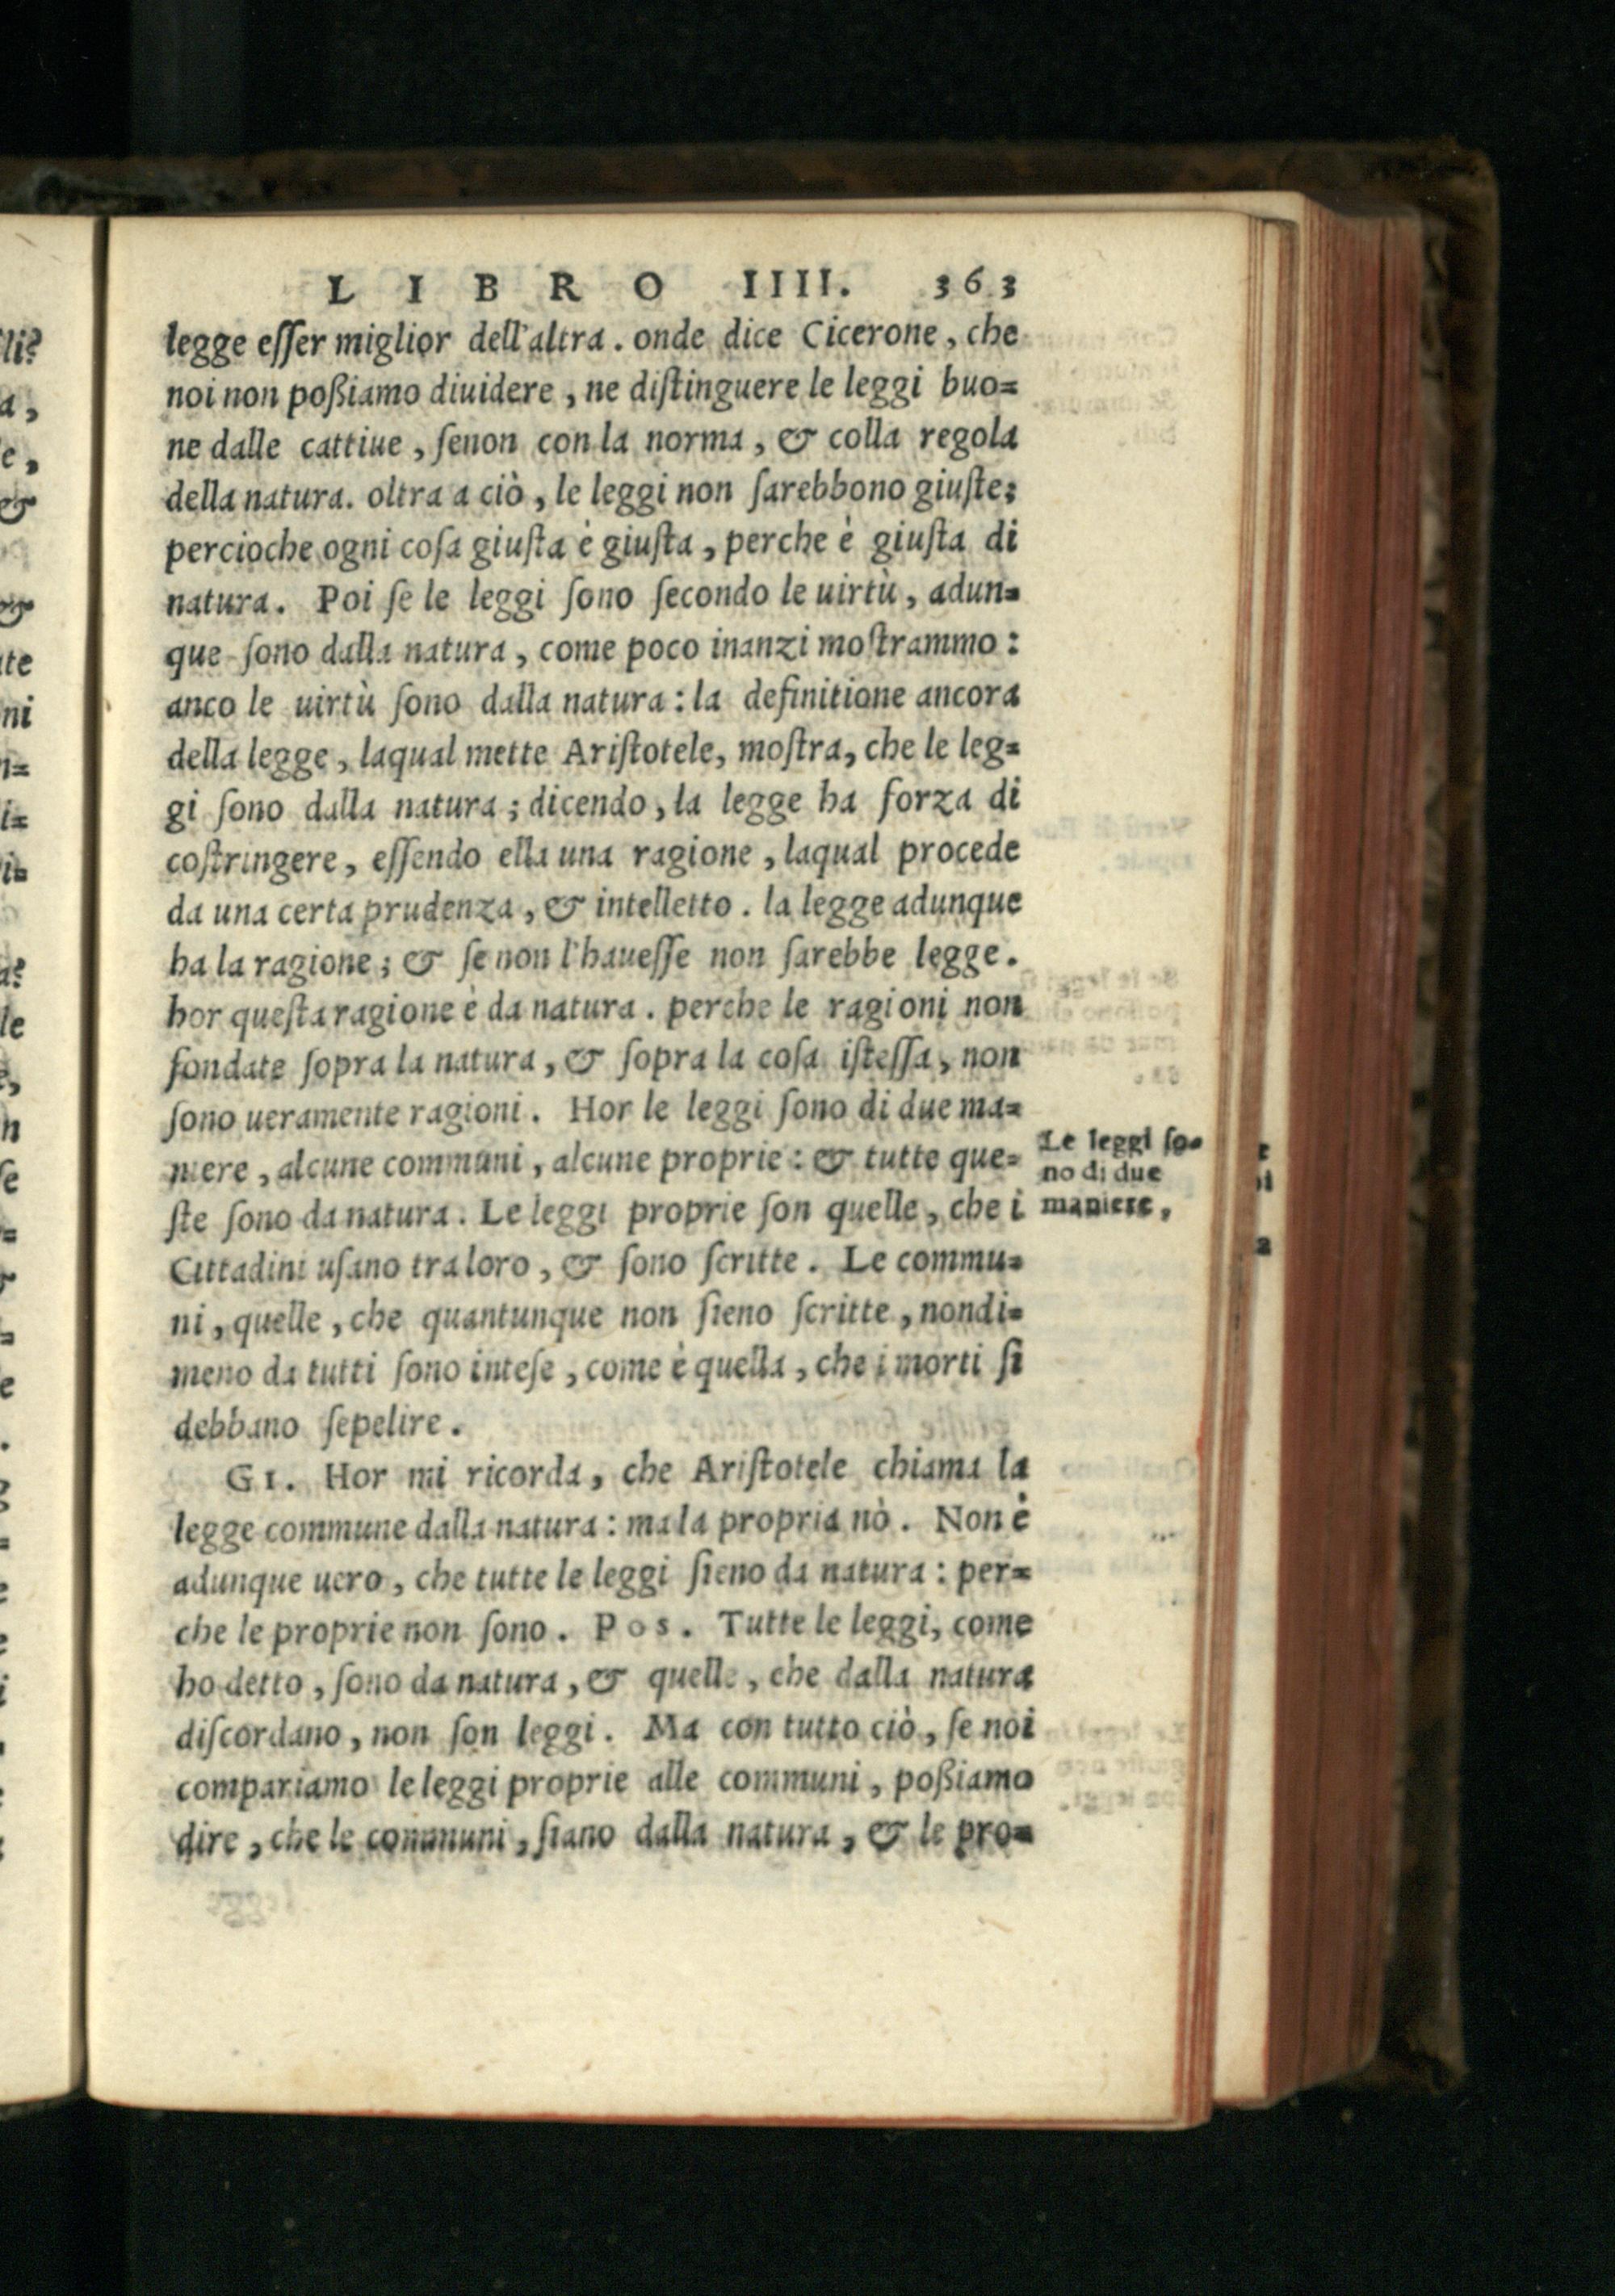 LIBRO IIII. 363
legge eſſer miglior dell'altra. onde dice Cicerone, che
noi non poßiamo diuidere, ne diſtinguere le leggi buo=
ne dalle cattiue, ſenon con la norma, & colla regola
della natura. oltra a ciò, le leggi non ſarebbono giuſte;
percioche ogni coſa giuſta è giuſta, perche è giuſta di
natura. Poi ſe le leggi ſono ſecondo le uirtù, adun=
que ſono dalla natura, come poco inanzi moſtrammo:
anco le uirtù ſono dalla natura: la definitione ancora
della legge, laqual mette Ariſtotele, moſtra, che le leg=
gi ſono dalla natura; dicendo, la legge ha forza di
coſtringere, eſſendo ella una ragione, laqual procede
da una certa prudenza, & intelletto. la legge adunque
ha la ragione; & ſe non l'haueſſe non ſarebbe legge.
hor queſta ragione è da natura. perche le ragioni non
fondate ſopra la natura, & ſopra la coſa iſteſſa, non
ſono ueramente ragioni. Hor le leggi ſono di due ma=
niere, alcune communi, alcune proprie: & tutte que=
ſte ſono da natura. Le leggi proprie ſon quelle, che i
Cittadini uſano tra loro, & ſono ſcritte. Le commu=
ni, quelle, che quantunque non ſieno ſcritte, nondi=
meno da tutti ſono inteſe, come è quella, che i morti ſi
debbano ſepelire.
GI. Hor mi ricorda, che Ariſtotele chiama la
legge commune dalla natura: ma la propria nò. Non è
adunque uero, che tutte le leggi ſieno da natura: per=
che le proprie non ſono. Pos. Tutte le leggi, come
ho detto, ſono da natura, & quelle, che dalla natura
diſcordano, non ſon leggi. Ma con tutto ciò, ſe noi
compariamo le leggi proprie alle communi, poßiamo
dire, che le communi, ſiano dalla natura, & le pro=
Le leggi ſo=
no di due
maniere,